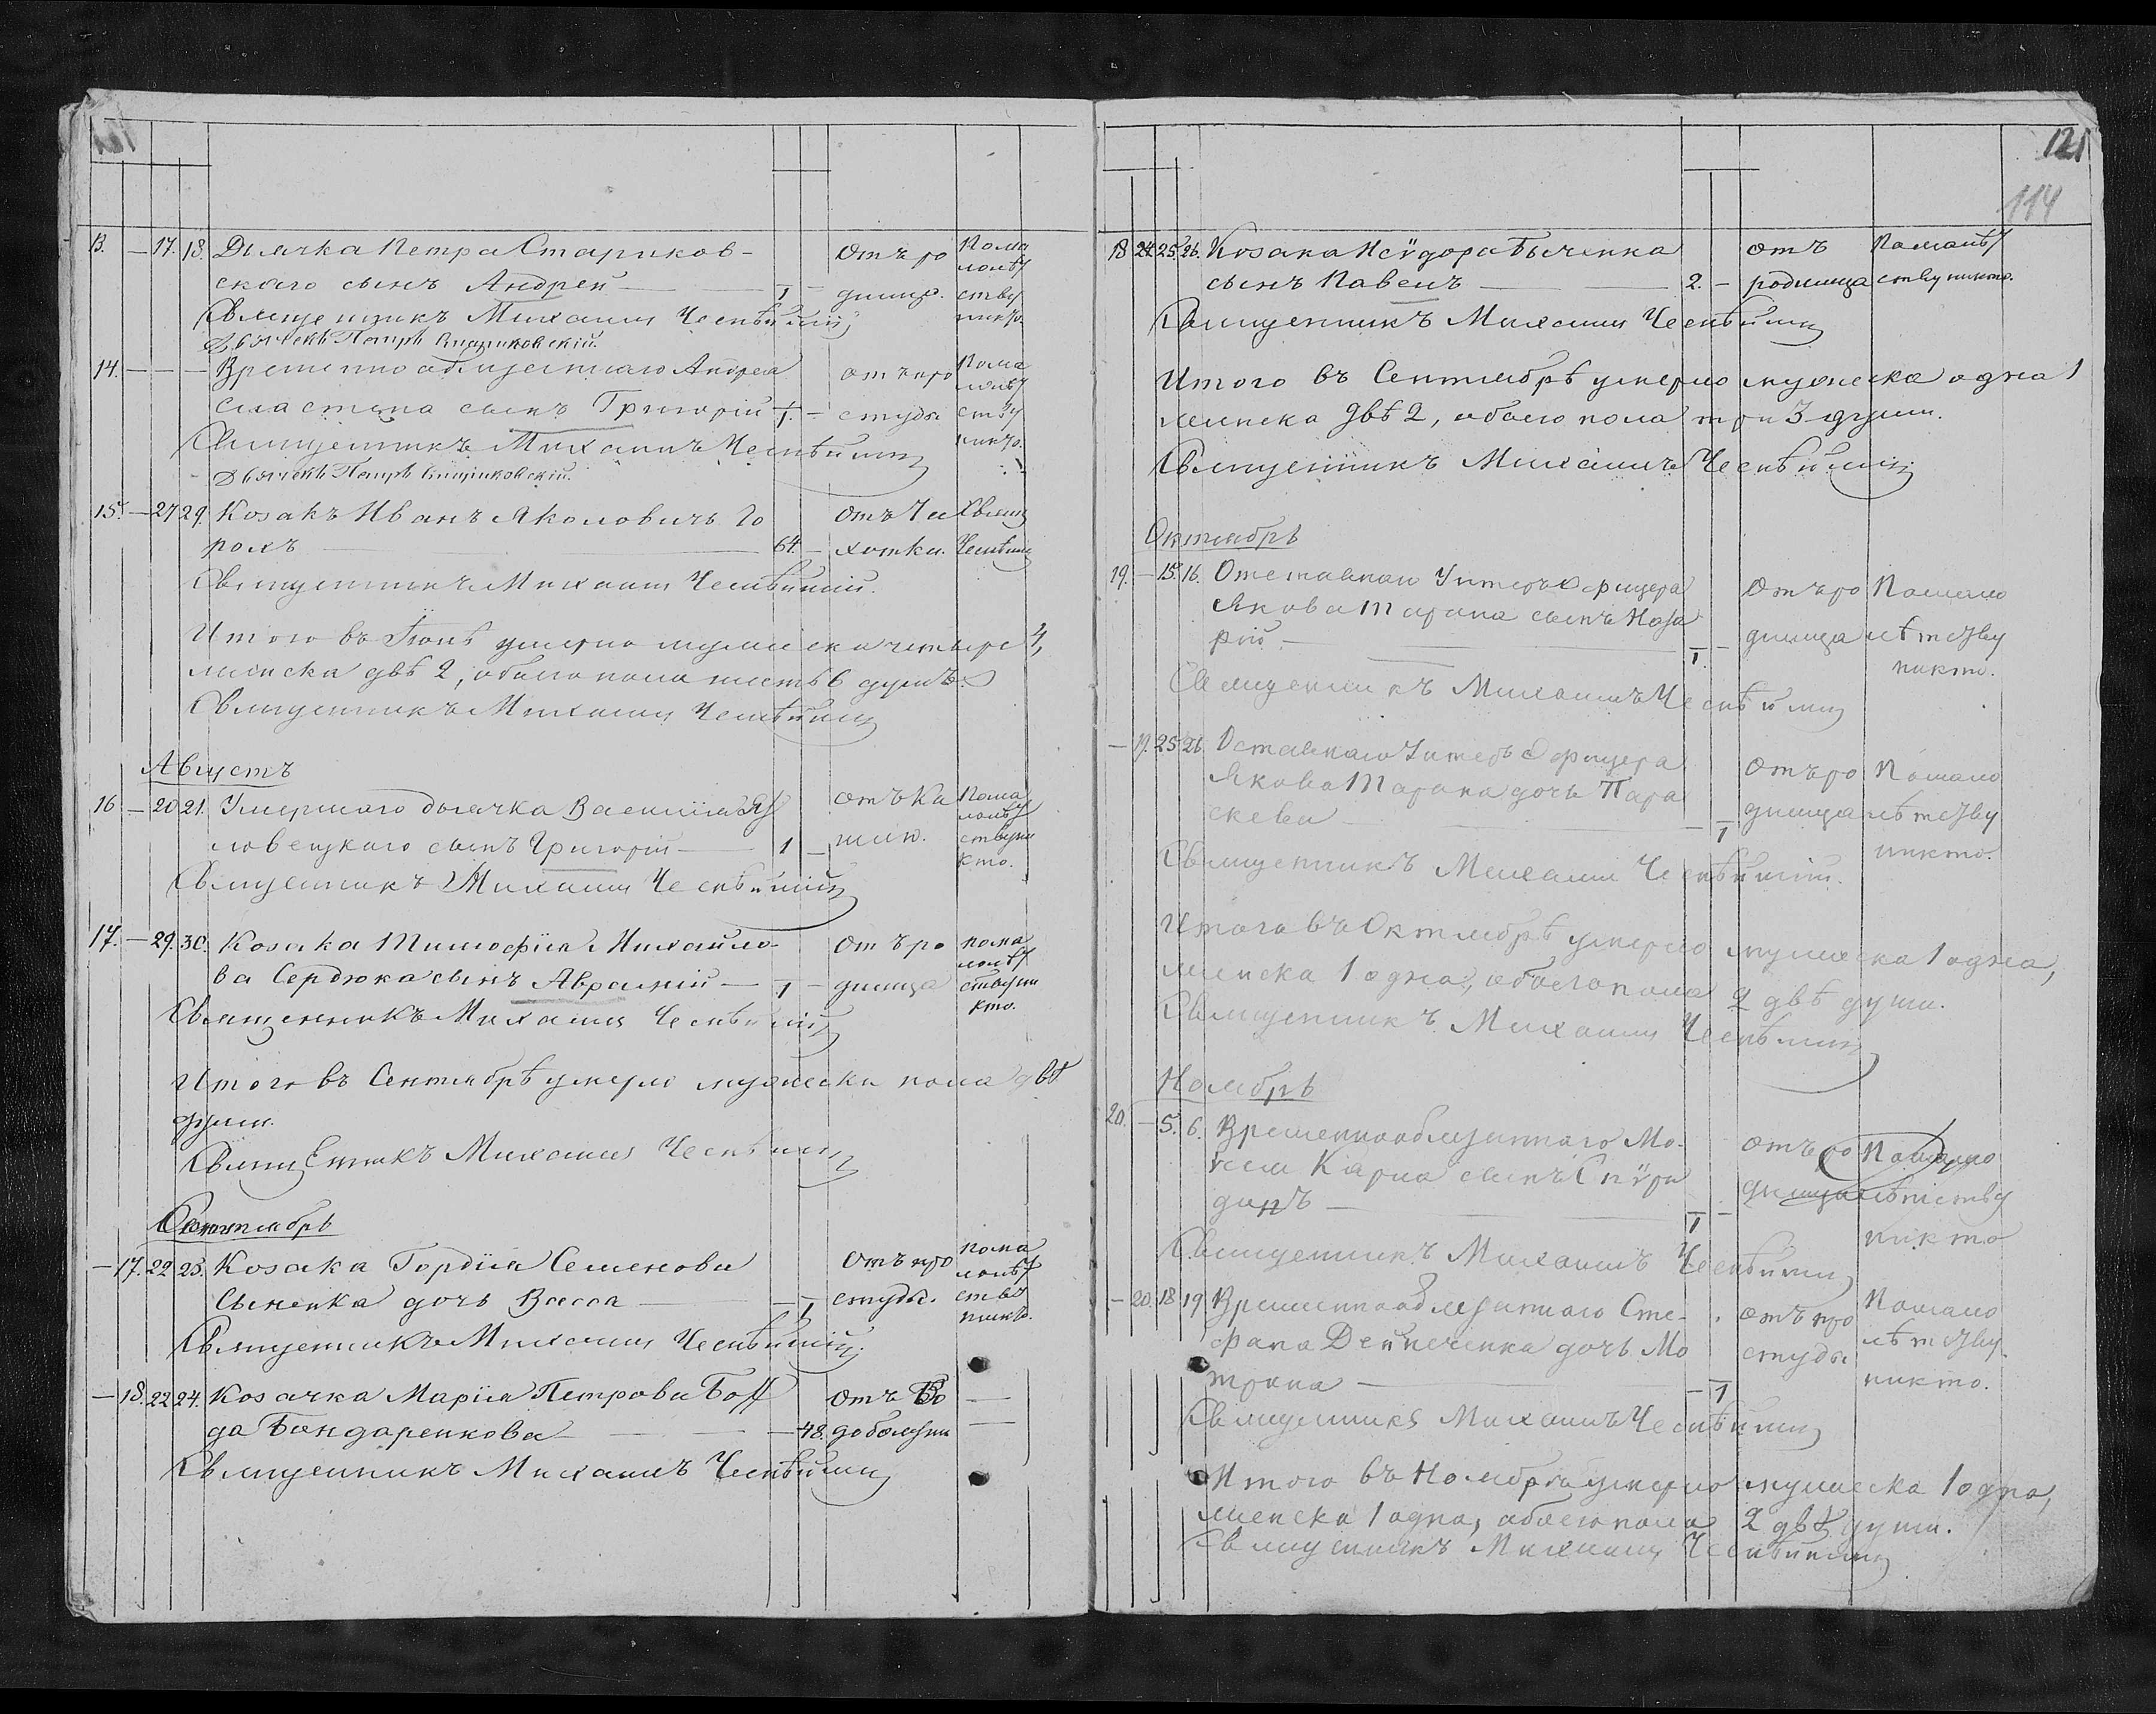 13. — 17. 18. Дьячка Петра Стариков-
скаго сынъ Андрей — 1 —
отъ ро
димца.
Пома
лолѣт
ству
никто.
Священникъ Михаилъ
Дьячекъ Петръ
14. — — — Временно обязаннаго Андрея
сынъ Григорій 1. —
отъ про
студы
Пома
лолѣт
ству
никто.
Священникъ Михаилъ
Дьячекъ Петръ
15. — 27 29. Козакъ Иванъ Яковловичъ Го
рохъ — 64. —
отъ Ча
хотки.
Свящ
Священникъ Михаилъ
Итого въ Іюнѣ умерло мужеска четыре 4,
женска двѣ 2, обоего пола шесть 6 душъ.
Священникъ Михаилъ
Августъ
16 — 20 21. Умершаго дьячка Василія
сынъ Григорій — 1 —
отъ Ка
шлю.
Пома
лолѣт
ству ни
кто.
Священникъ Михаилъ
17. — 29. 30. Козака Тимофія Михайло-
ва Сердюка сынъ Аврамій — 1 —
отъ ро
димца
пома
лолѣт
ству ни
кто.
Священникъ Михаилъ
Итого въ Сентябрѣ умерло мужеска пола двѣ
души.
Священникъ Михаилъ
Сентябрь
— 17. 22 23. Козака Гордія Семенова
дочь Васса — — 1
отъ про
студы.
пома
лолѣт
ству
никто.
Священникъ Михаилъ
— 18. 22 24. Козачка Марія Петрова
Бондаренкова — — 48.
отъ Во
добоязни
Священникъ Михаилъ
121
114
18 24 25 26. Козака Исидора Быченка
сынъ Павелъ — 2. —
отъ
родимца
Помалѣт
ству никто.
Священникъ Михаилъ
Итого въ Сентябрѣ умерло мужеска одна 1
женска двѣ 2, обоего пола три 3 души.
Священникъ Михаилъ
Октябрь
19. — 15. 16. Отставнаи Унтеръ Офицера
Якова Тарана сынъ Наза
рій — 1. —
отъ ро
димца
Помало
лѣтству
никто.
Священникъ Михаилъ
— 19. 25 26. Оставнаго Унтеръ Офицера
Якова Тарана дочь Пара
скева — — 1
отъ ро
димца
Помало
лѣтству
никто.
Священникъ Михаилъ
Итого въ Октябрѣ умерло мужеска 1 одна,
женска 1 одна, обоего пола 2 двѣ души.
Священникъ Михаилъ
Ноябрь
20. — 5. 6. Временнообязаннаго Мо-
сея Карпа сынъ Спири
донъ — 1 —
отъ ро
димца
Помало
лѣтству
никто
Священникъ Михаилъ
— 20. 18 19 Временнообязаннаго Сте-
фана Дейнеченка дочь Мо
трона — — 1
отъ про
студы
Помало
лѣтству
никто.
Священникъ Михаилъ
Итого въ Ноябрѣ умерло мужеска 1 одна,
женска 1 одна, обоего пола 2 двѣ души.
Священникъ Михаилъ